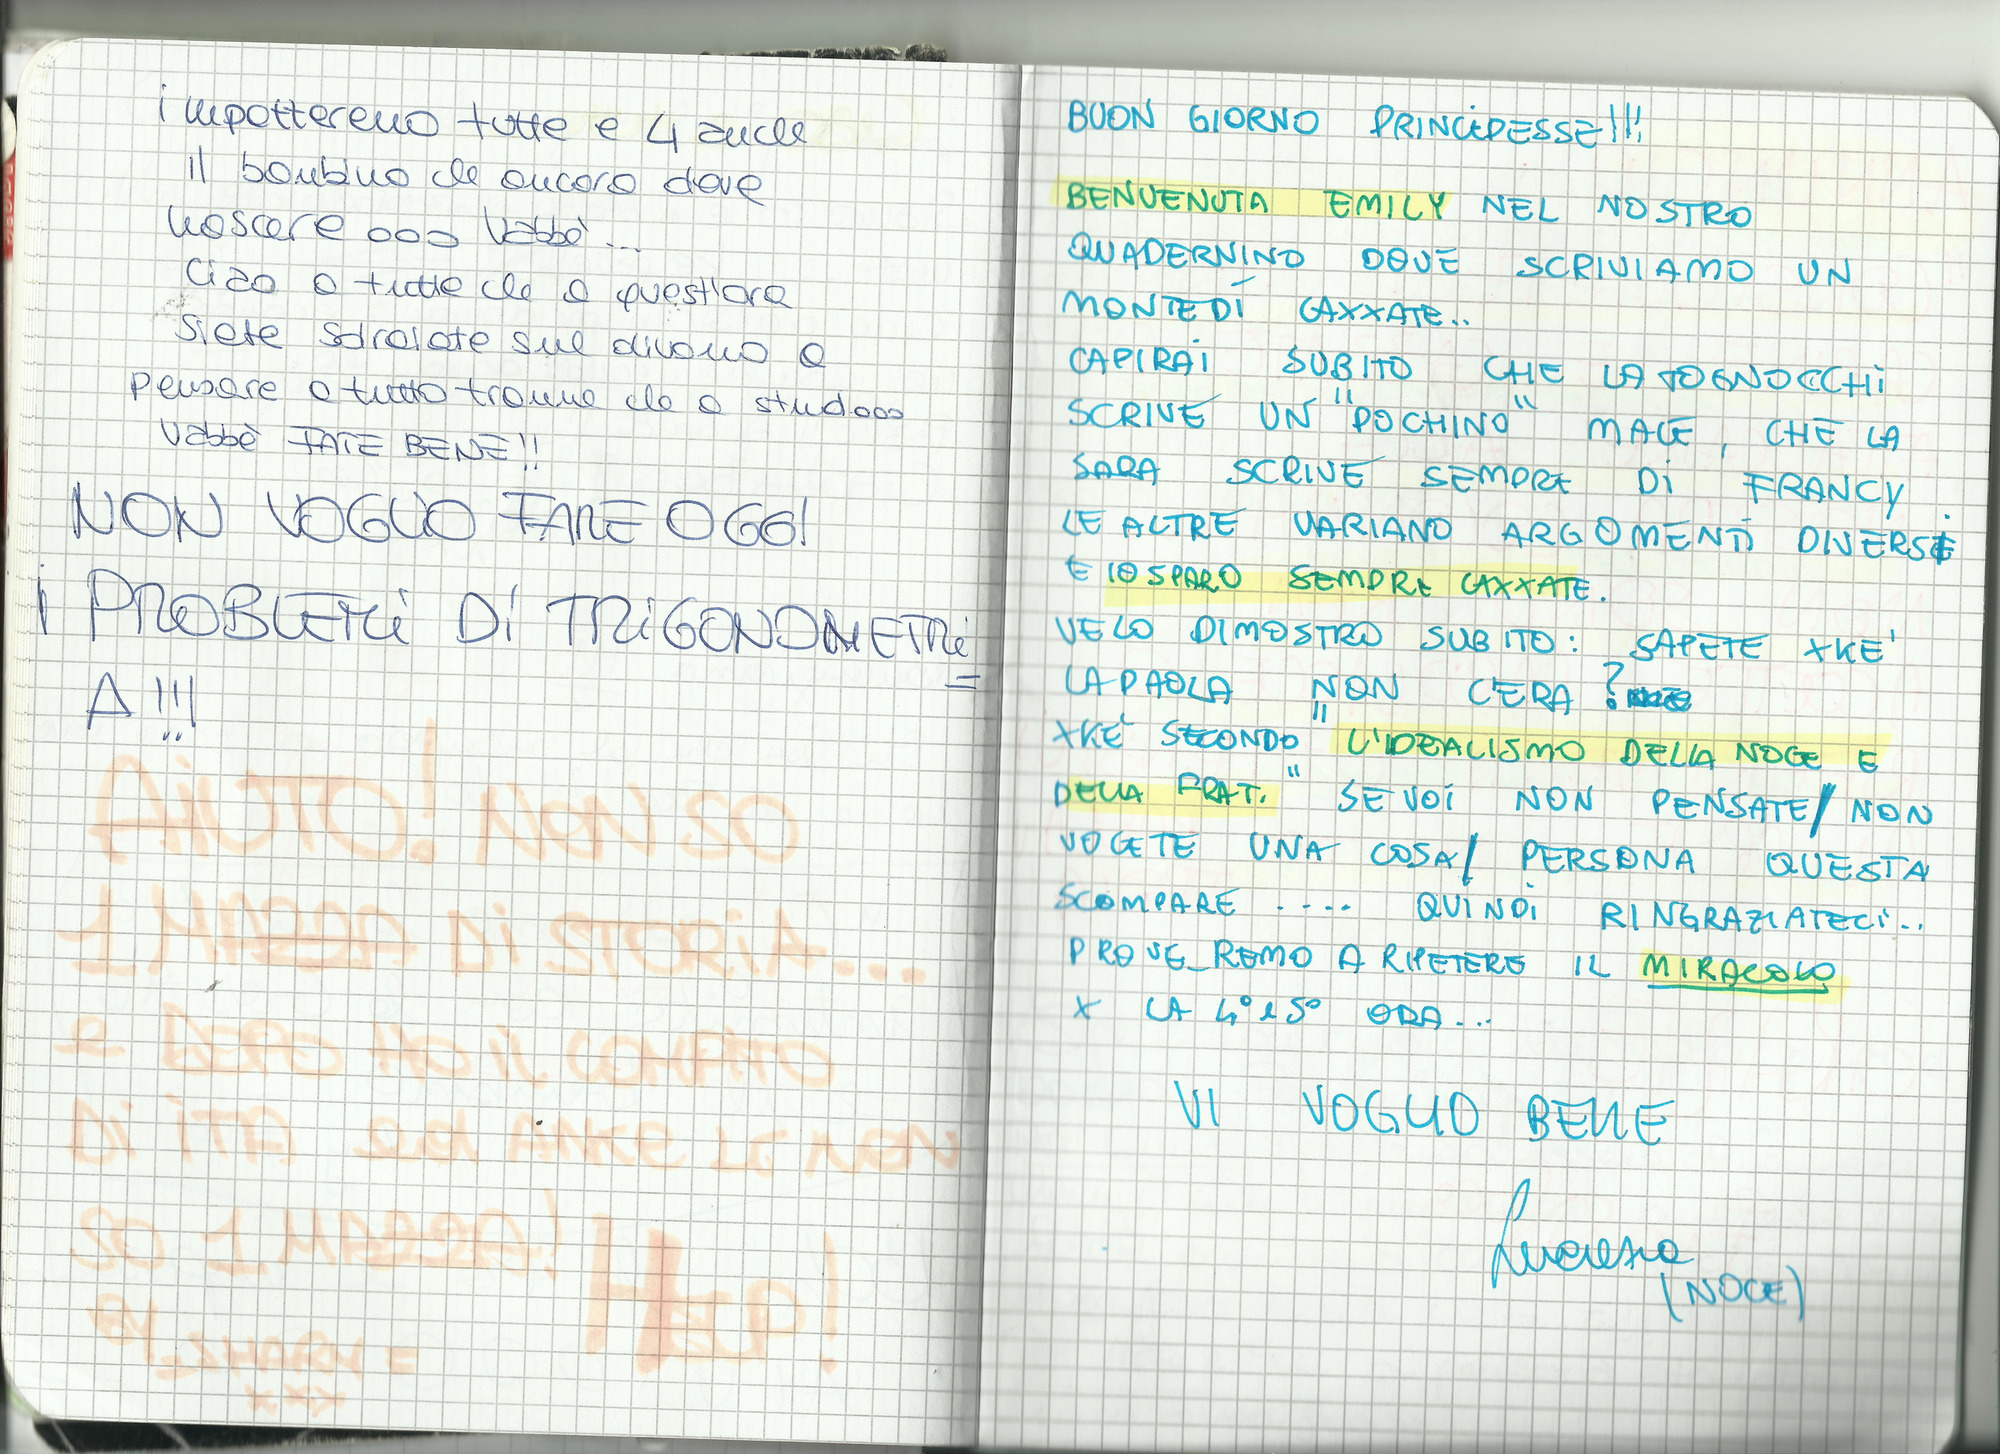 impottereмo tutte e 4 anche
il bambino che ancora deve
nascere ooo vabbè...
Ciao a tutte che a quest'ora
siete sdraiate sul divano a
pensare a tutto tranne che a studooo
vabbè FATE BENE!!
NON VOGLIO FARE OGGI
i PROBLEMi Di TRiGONOMETRi=
A!!!
AiUTO! NON SO
1 MAZZA Di STORiA...
e DOPO HO iL COMPITO
Di iTA SO 1 MAZZA!
BUON GIORNO PRINCIPESSE!!!
BENVENUTA EMILY NEL NOSTRO
QUADERNINO DOVE SCRIVIAMO UN
MONTE DÍ CAXXATE..
CAPIRAI SUBITO CHE LA TOGNOCCHI
SCRIVE UN "POCHINO" MALE, CHE LA
SARA SCRIVE SEMPRE DI FRANCY
LE ALTRE VARIANO ARGOMENTI DIVERSI
E IO SPARO SEMPRE CAXXATE.
VE LO DIMOSTRO SUBITO: SAPETE XKE'
LA PAOLA NON C'ERA?
XKE' SECONDO "L'IDEALISMO DELLA NOCE E
DELLA FRAT." SE VOI NON PENSATE/NON
VOLETE UNA COSA/PERSONA QUESTA
SCOMPARE .... QUINDI RINGRAZIATECI..
PROVE_REMO A RIPETERE IL MIRACOLO
X LA 4° e 5° ORA...
VI VOGLIO BENE
Lucrezia
(NOCE)